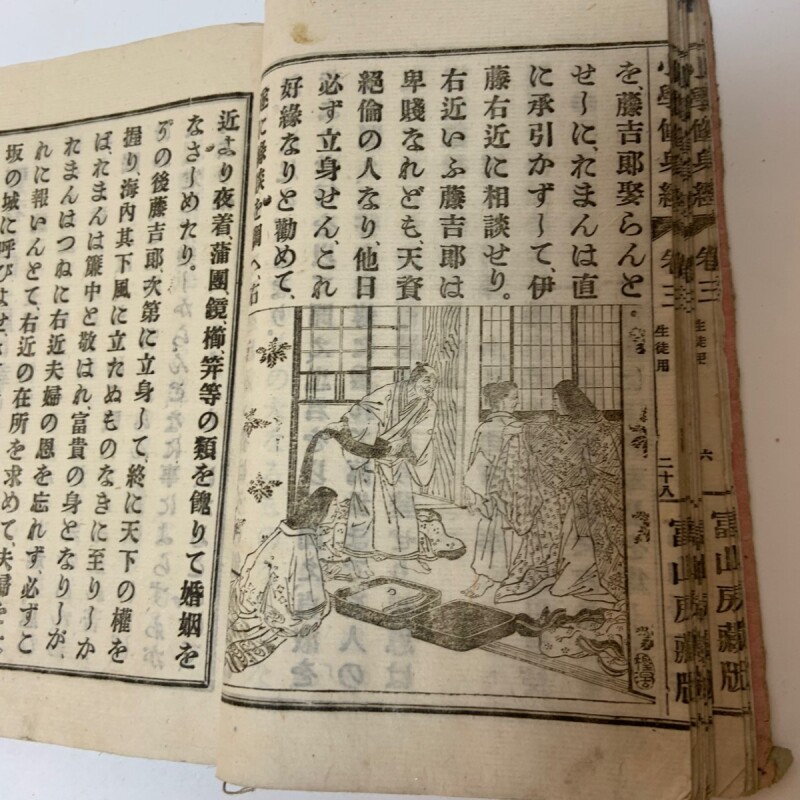 を、藤吉郎娶らんと
せしに、たまんは直
に承引かずして、伊
藤右近に相談せり。
右近いふ藤吉郎は
卑賤なれども、天資
絕倫の人なり、他日
必ず立身せん、これ
好緣なりと勸めて、
近より夜着、蒲團、鏡、櫛、笄等の類を餽りて婚姻を
なさしめたり。
その後藤吉郎、次第に立身して、終に天下の權を
握り、海內其下風に立たぬものなきに至りしか
ば、たまんは簾中と敬はれ、富貴の身となりしが、
たまんはつねに右近夫婦の恩を忘れず、必ずこ
れに報いんとて、右近の在所を求めて、夫婦を大
坂の城に呼びよせ、
小學修身經 卷三 生徒用 二十八 富山房藏版
小學修身經 卷三 生徒用 六 富山房藏版